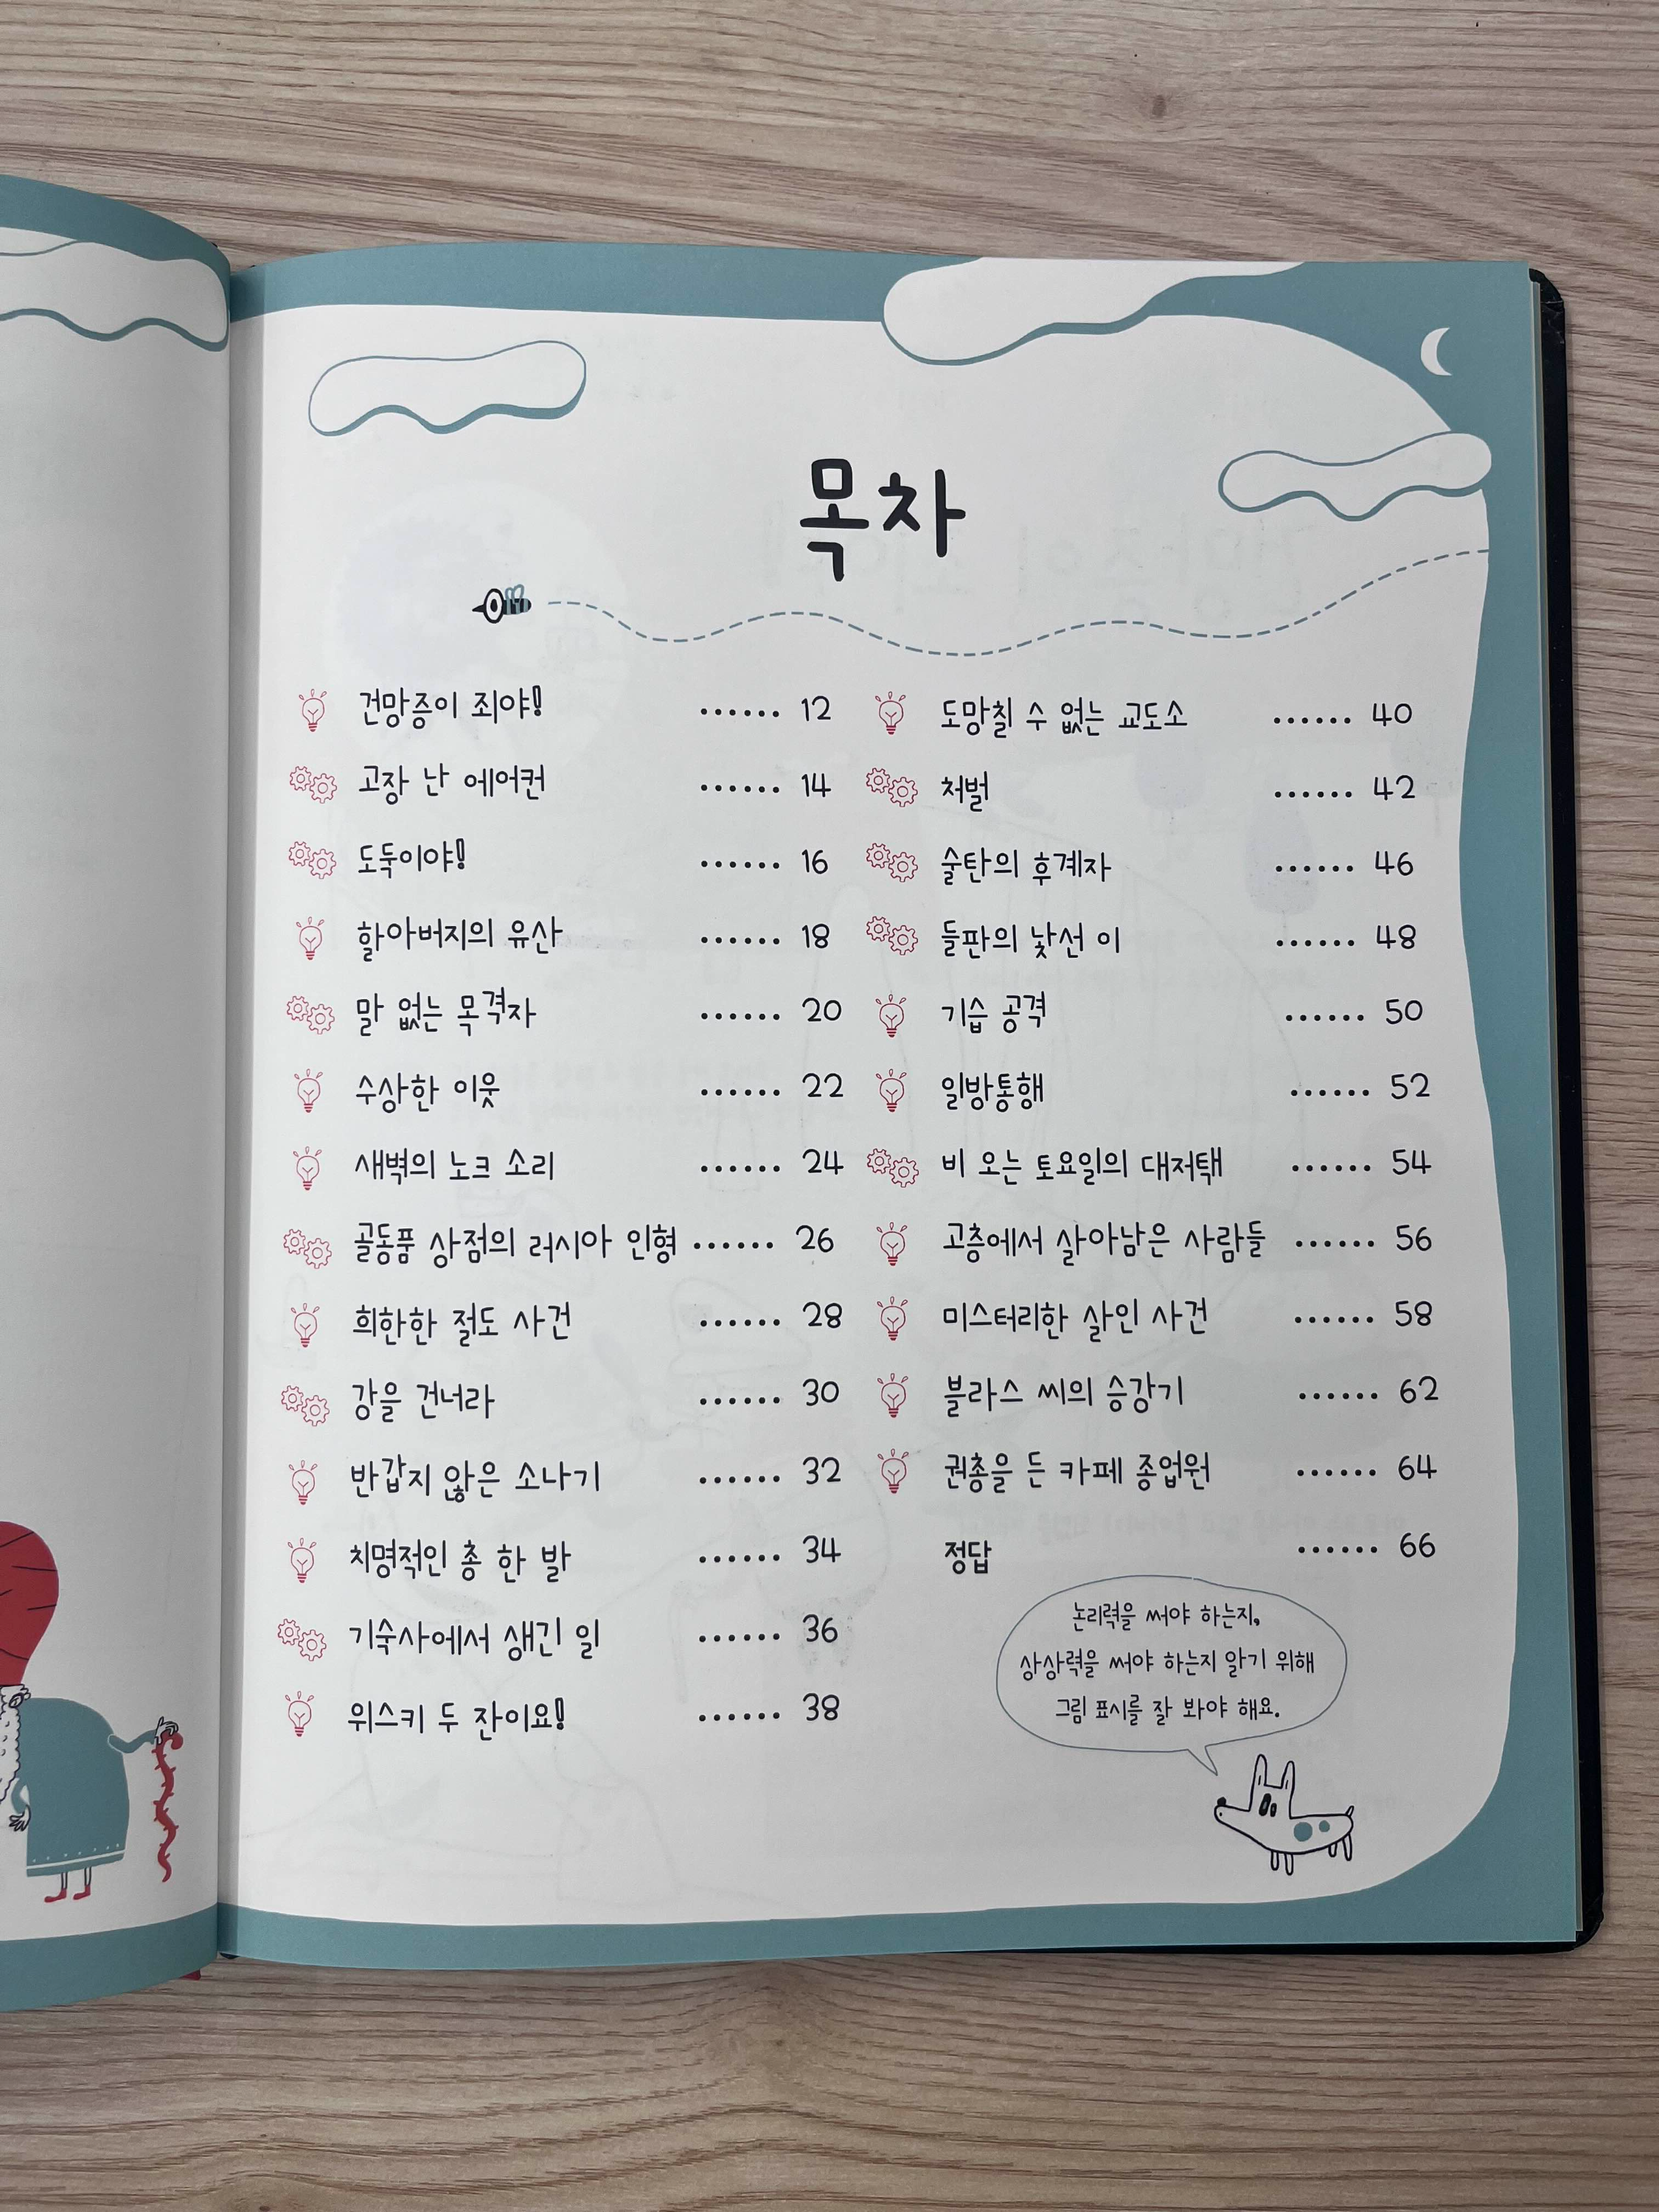 목차
건망증이 죄야! ...... 12
고장 난 에어컨 ...... 14
도둑이야! ...... 16
할아버지의 유산 ...... 18
말 없는 목격자 ...... 20
수상한 이웃 ...... 22
새벽의 노크 소리 ...... 24
골동품 상점의 러시아 인형 ...... 26
희한한 절도 사건 ...... 28
강을 건너라 ...... 30
반갑지 않은 소나기 ...... 32
치명적인 총 한 발 ...... 34
기숙사에서 생긴 일 ...... 36
위스키 두 잔이요! ...... 38
도망칠 수 없는 교도소 ...... 40
처벌 ...... 42
술탄의 후계자 ...... 46
들판의 낯선 이 ...... 48
기습 공격 ...... 50
일방통행 ...... 52
비 오는 토요일의 대저택 ...... 54
고층에서 살아남은 사람들 ...... 56
미스터리한 살인 사건 ...... 58
블라스 씨의 승강기 ...... 62
권총을 든 카페 종업원 ...... 64
정답 ...... 66
논리력을 써야 하는지,
상상력을 써야 하는지 알기 위해
그림 표시를 잘 봐야 해요.